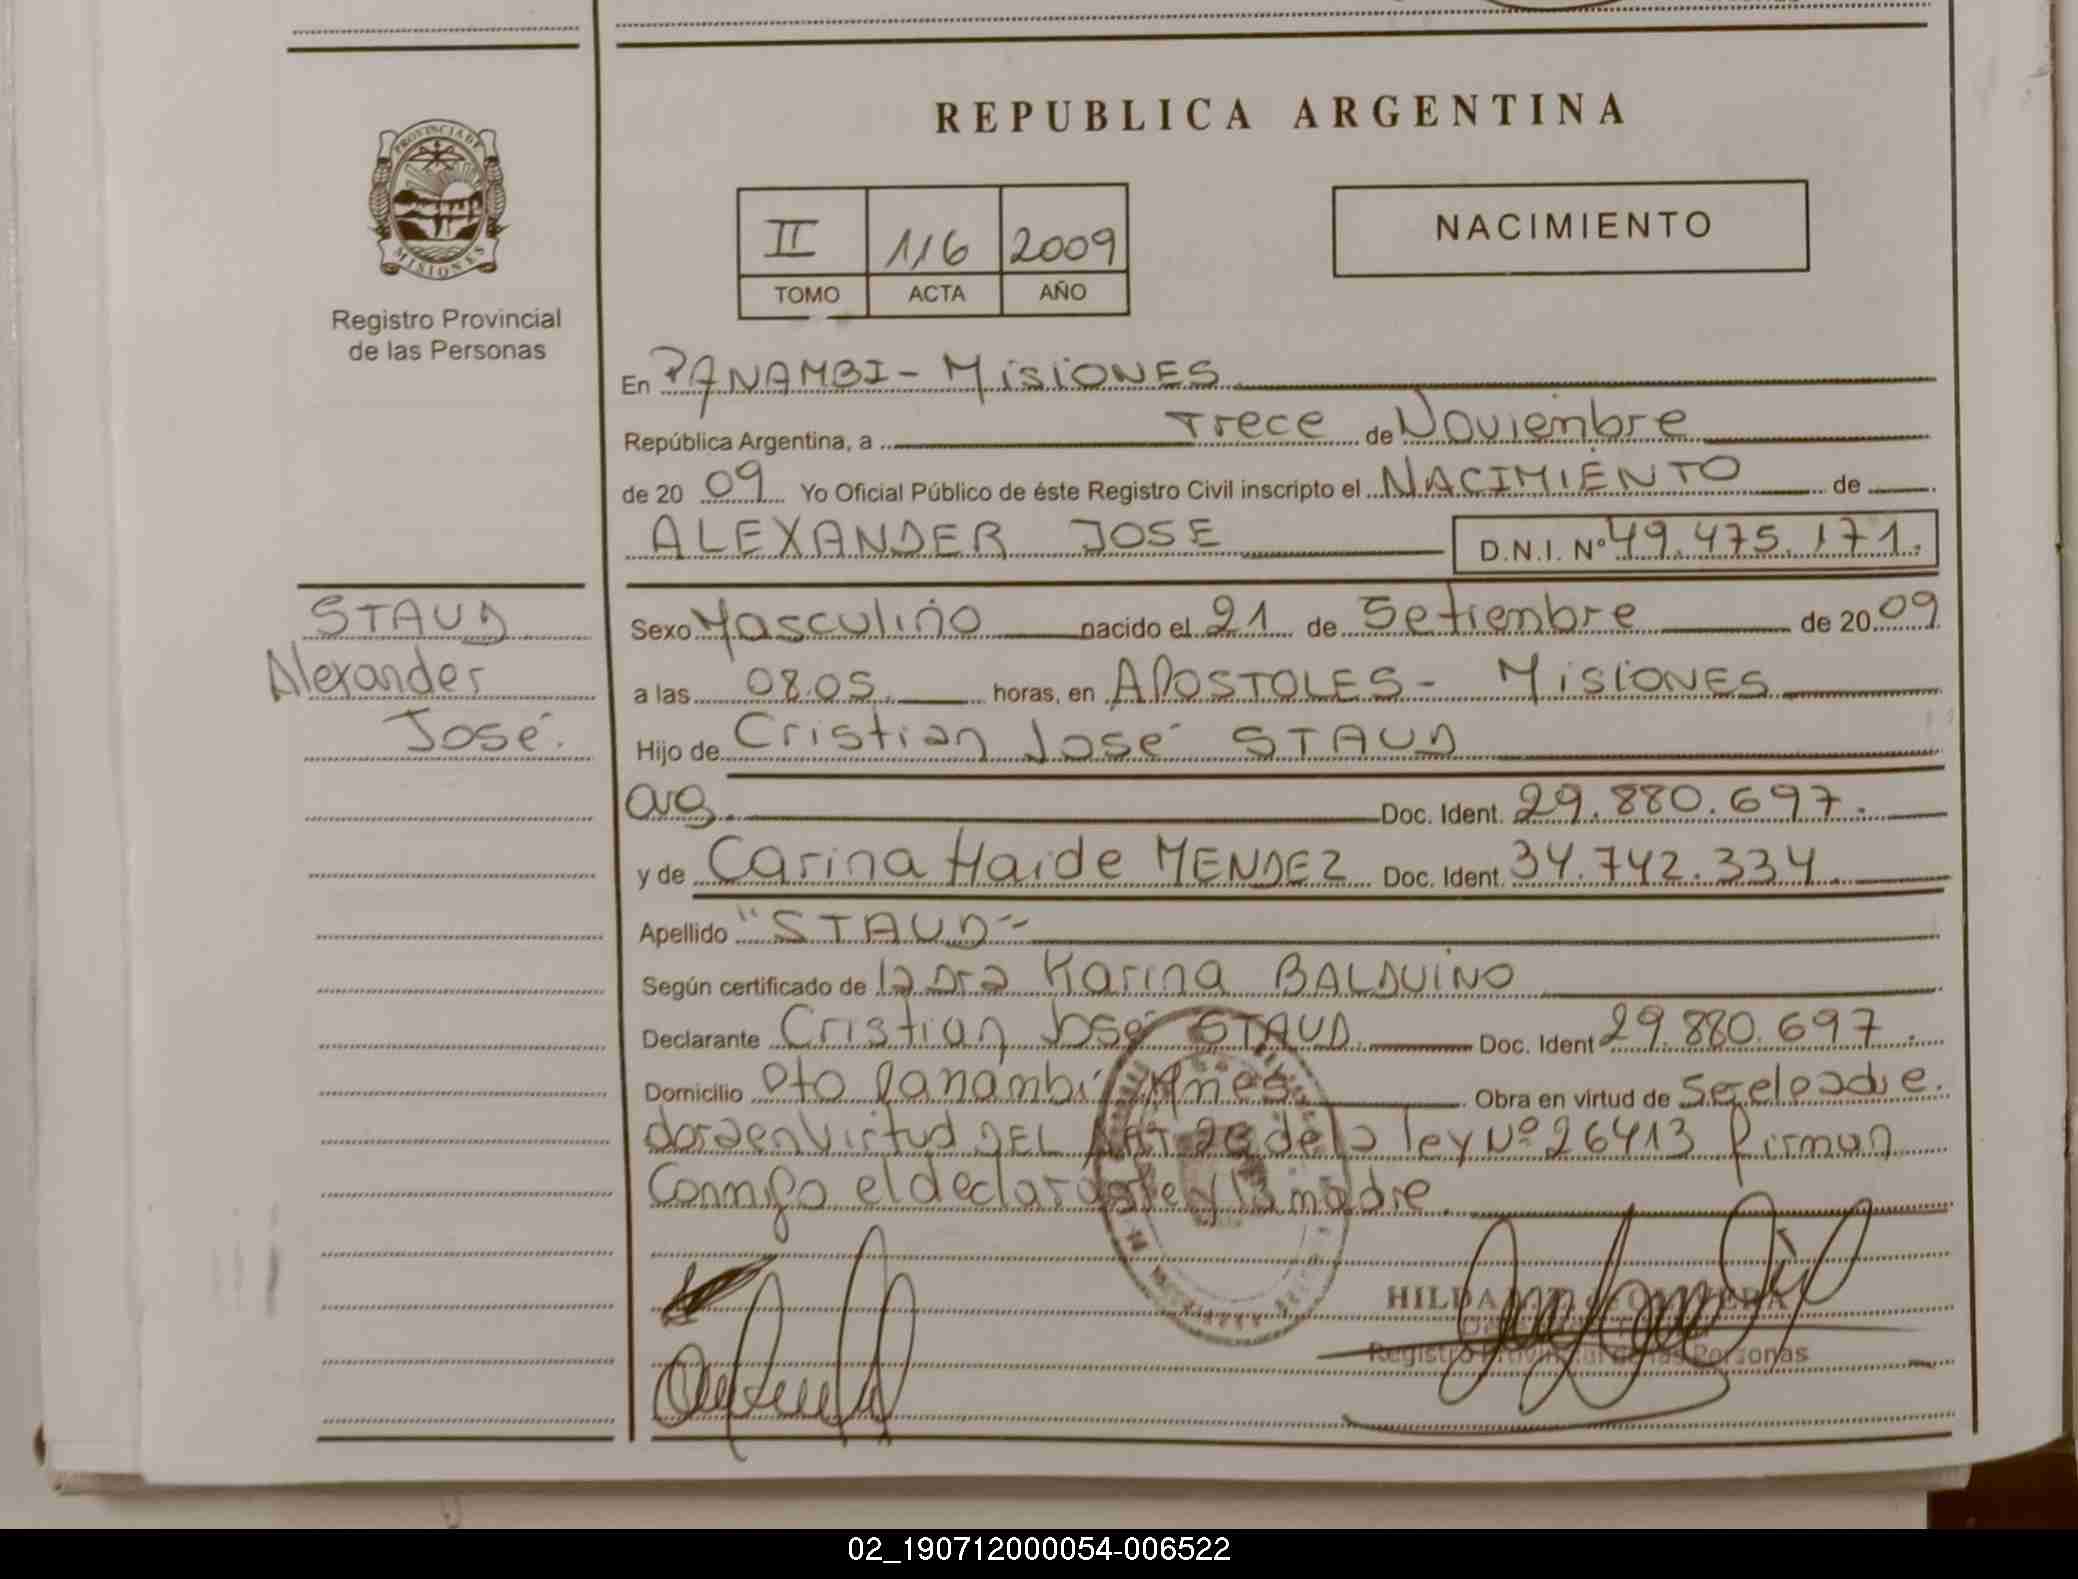 REPUBLICA ARGENTINA
PROVINCIA DE
MISIONES
Registro Provincial
de las Personas
II 116 2009
TOMO ACTA AÑO
NACIMIENTO
En PANAMBI - MISIONES
República Argentina, a Trece de Noviembre
de 20 09 Yo Oficial Público de éste Registro Civil inscripto el NACIMIENTO de
ALEXANDER JOSE D.N.I. Nº 49.475.171.
STAUD
Alexander
José.
Sexo Masculino nacido el 21 de Setiembre de 20 09
a las 08.05 horas, en APOSTOLES - MISIONES
Hijo de Cristian José STAUD
arg Doc. Ident. 29.880.697.
y de Carina Haide MENDEZ Doc. Ident. 34.742.334
Apellido "STAUD"
Según certificado de la Dra Karina BALDUINO
Declarante Cristian José STAUD Doc. Ident 29.880.697.
Domicilio Pto Panambi Mnes Obra en virtud de
en Virtud DEL ART de la ley Nº 26413 firman
Conmigo el declarante y la madre.
HILDA
Registro Provincial de las Personas
02_190712000054-006522